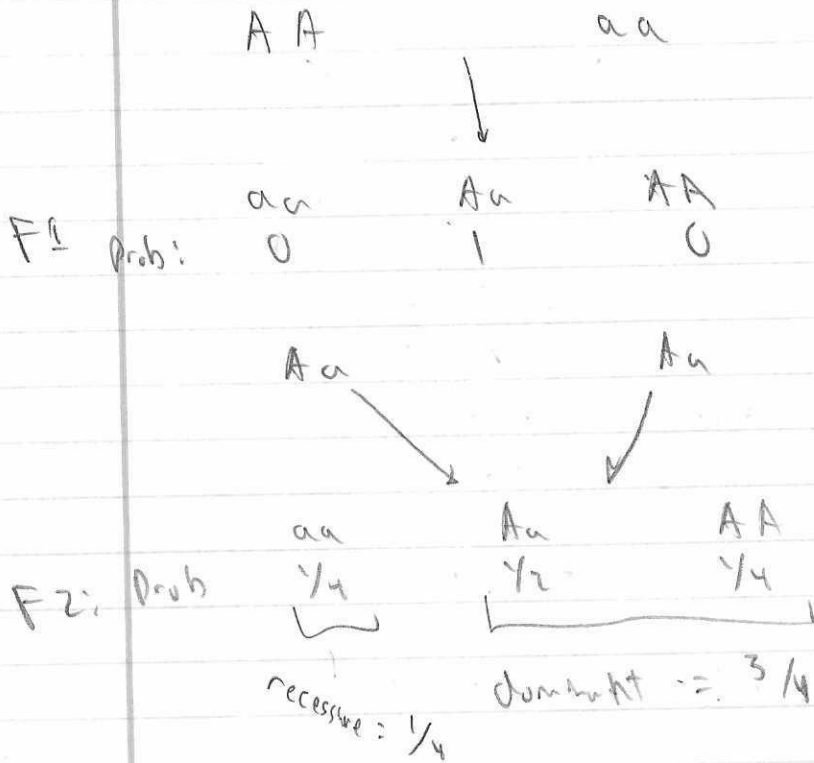 AA aa
F1 Prob: aa Aa AA
0 1 0
Aa Aa
aa Aa AA
F2: Prob 1/4 1/2 1/4
recessive = 1/4 dominant = 3/4